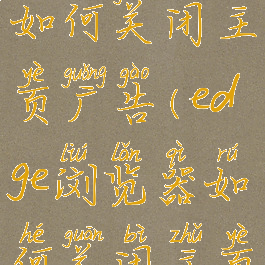 如何关闭主
yè guǎng gào
页广告(ed
liú lǎn qì rú
ge浏览器如
hé guān bì zhǔ yè
何关闭主页